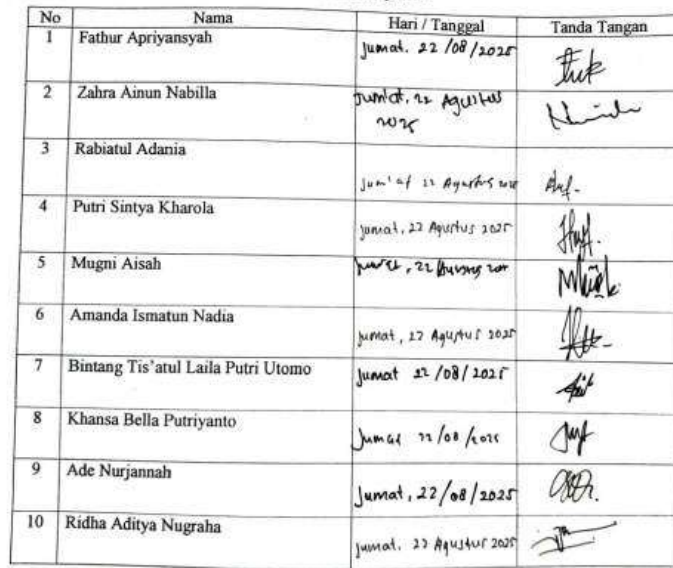 No Nama Hari / Tanggal Tanda Tangan
1 Fathur Apriyansyah Jumat. 22 / 08 / 2025
2 Zahra Ainun Nabilla Jum'at, 22 Agustus
2025
3 Rabiatul Adania Jum'at 22 Agustus 2025
4 Putri Sintya Kharola Jumat, 22 Agustus 2025
5 Mugni Aisah Jumat, 22 Agustus
6 Amanda Ismatun Nadia Jumat, 22 Agustus 2025
7 Bintang Tis'atul Laila Putri Utomo Jumat 22 / 08 / 2025
8 Khansa Bella Putriyanto Jumat 22 / 08 / 2025
9 Ade Nurjannah Jumat, 22 / 08 / 2025
10 Ridha Aditya Nugraha Jumat. 22 Agustus 2025